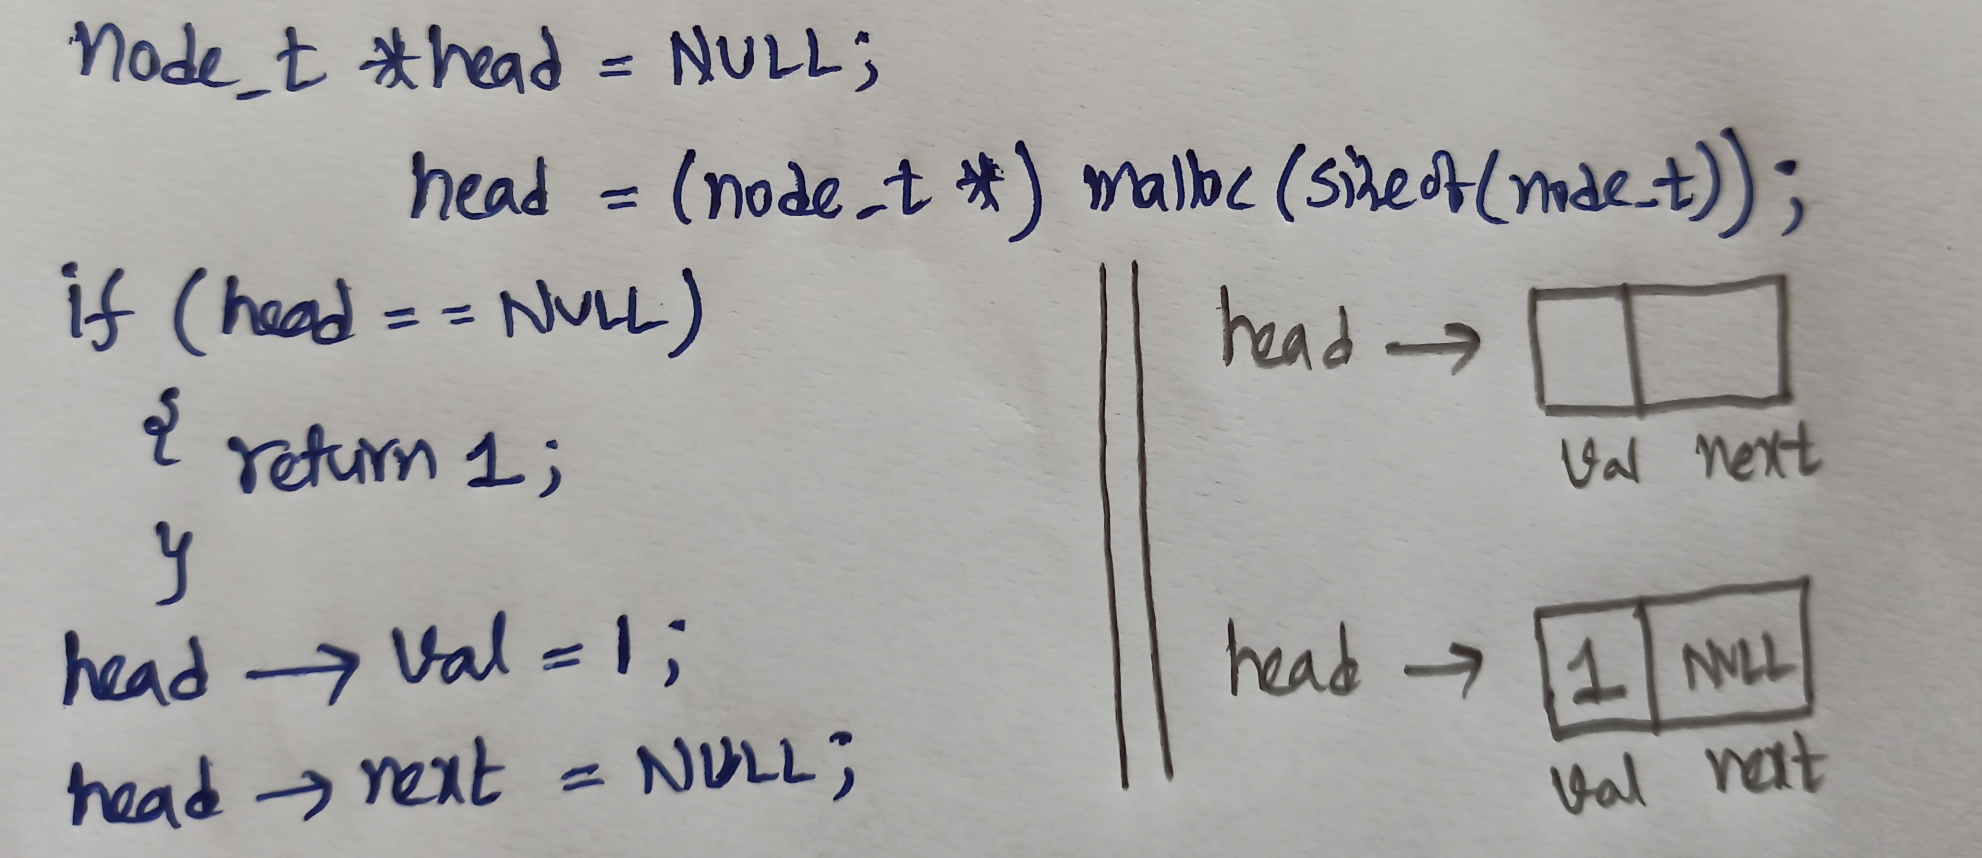 node_t *head = NULL;
head = (node_t *) malloc (sizeof(node_t));
if (head == NULL)
{ return 1;
}
head → val = 1;
head → next = NULL;
head →
val next
head → 1 NULL
val next